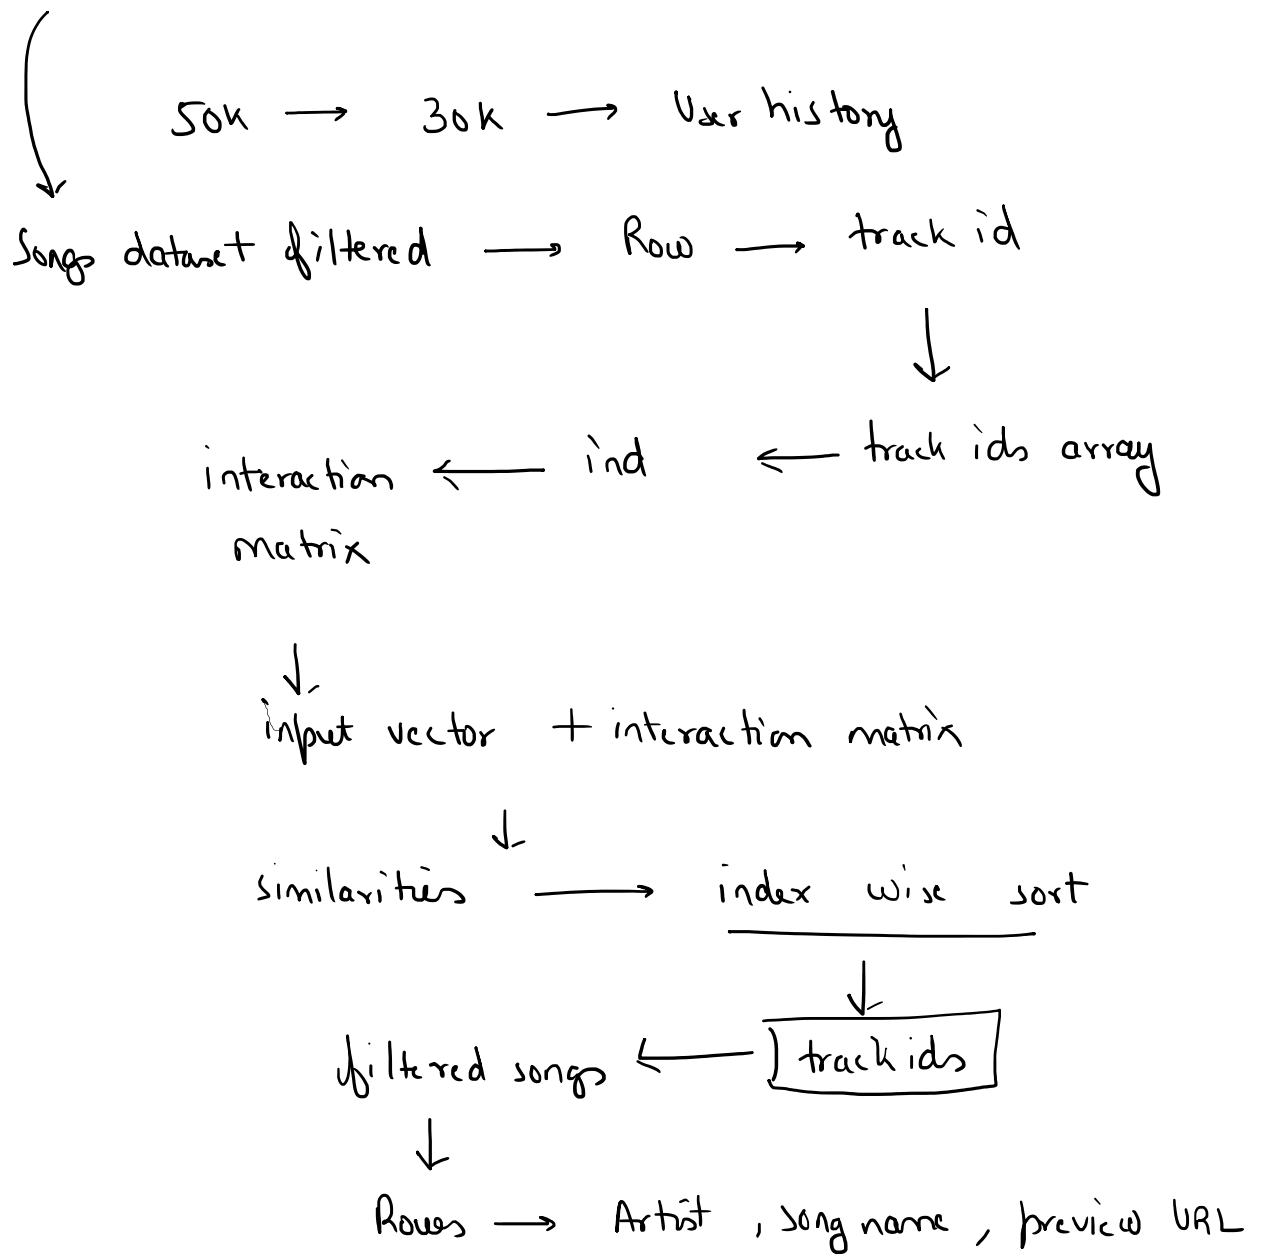 50k → 30k → User history
Songs dataset filtered → Row → track id
interaction ← ind ← track ids array
matrix
input vector + interaction matrix
similarities → index wise sort
filtered songs ← track ids
Rows → Artist, song name, preview URL